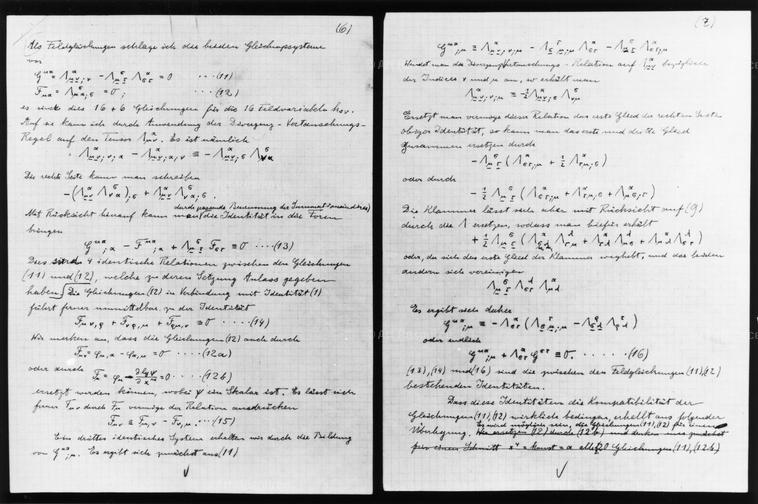 (6)
Als Feldgleichungen schlage ich die beiden Gleichungssysteme
vor
G^{μα} = Λ^α_{μν;ν} − Λ^σ_{μτ} Λ^α_{στ} = 0 ····(11)
F_{μα} = Λ^σ_{μα;σ} = 0 ; ····(12)
es sind dies 16+6 Gleichungen für die 16 Feldvariabeln
Auf sie kann ich durch Anwendung der Divergenz-Vertauschungs-
Regel auf den Tensor Λ^α_{μν}. Es ist nämlich
Λ^α_{μν;ν;α} − Λ^α_{μν;α;ν} ≡ − Λ^α_{μν;σ} Λ^σ_{να}
Die rechte Seite kann man schreiben
−(Λ^α_{μν} Λ^σ_{να})_{;σ} + Λ^α_{μν} Λ^σ_{να;σ} .
durch passende Benennung der
Mit Rücksicht hierauf kann man die Identität in die Form
bringen
G^{μα}_{;α} − F^{μα}_{;α} + Λ^σ_{μτ} F_{στ} ≡ 0 ····(13)
Dies sind 4 identische Relationen zwischen den Gleichungen
(11) und (12), welche zu deren Setzung Anlass gegeben
haben. Die Gleichungen (12) in Verbindung mit Identität (1)
führt ferner unmittelbar zu der Identität
F_{μν,ρ} + F_{νρ,μ} + F_{ρμ,ν} = 0 ·····(14)
Wir merken an, dass die Gleichungen (12) auch durch
F_{μα} = φ_{μ,α} − φ_{α,μ} = 0 ····(12a)
oder durch
F_μ = φ_μ − ∂lgψ/∂x^μ = 0 ····(12b)
ersetzt werden können, wobei ψ ein Skalar ist. Es lässt sich
ferner F_{μν} durch F_μ vermöge der Relation ausdrücken
F_{μν} ≡ F_{μ,ν} − F_{ν,μ} ····(15)
Ein drittes identisches System erhalten wir durch die Bildung
von G^{μα}_{;μ}. Es ergibt sich zunächst aus (11)
(7)
G^{μα}_{;μ} ≡ Λ^α_{μν;ν;μ} − Λ^σ_{μτ;μ} Λ^α_{στ} − Λ^σ_{μτ} Λ^α_{στ;μ}
Wendet man die Divergenz-Vertauschungs-Relation auf Λ^α_{μν} bezüglich
der Indices ν und μ an, so erhält man
Λ^α_{μν;ν;μ} ≡ −½ Λ^α_{μν;σ} Λ^σ_{νμ}
Ersetzt man vermöge dieser Relation das erste Glied der rechten Seite
obiger Identität, so kann man das erste und dritte Glied
zusammen ersetzen durch
− Λ^σ_{μτ} (Λ^α_{στ;μ} + ½ Λ^α_{τμ;σ})
oder durch
− ½ Λ^σ_{μτ} (Λ^α_{στ;μ} + Λ^α_{τμ;σ} + Λ^α_{μσ;τ})
Die Klammer lässt sich aber mit Rücksicht auf (9)
durch die Λ ersetzen, sodass man hiefür erhält
+ ½ Λ^σ_{μτ} (Λ^α_{σλ} Λ^λ_{τμ} + Λ^α_{τλ} Λ^λ_{μσ} + Λ^α_{μλ} Λ^λ_{στ})
oder, da sich das erste Glied der Klammer weghebt, und die beiden
andern sich vereinigen
Λ^σ_{μτ} Λ^λ_{στ} Λ^α_{μλ}
Es ergibt sich daher
G^{μα}_{;μ} ≡ − Λ^α_{στ} (Λ^σ_{μτ;μ} − Λ^σ_{ρλ} Λ^τ_{ρλ})
oder endlich
G^{μα}_{;μ} + Λ^α_{στ} G^{στ} ≡ 0. ·····(16)
(13), (14) und (16) sind die zwischen den Feldgleichungen (11), (12)
bestehenden Identitäten.
Dass diese Identitäten die Kompatibilität der
Gleichungen (11), (12) wirklich bedingen, erhellt aus folgender
Es wird möglich sein, die Gleichungen (11), (12) für einen
Überlegung. Wir ersetzen (12) durch (12b) und denken uns zunächst
für einen Schnitt x⁴ = konst = a alle 20 Gleichungen (11), (12b)